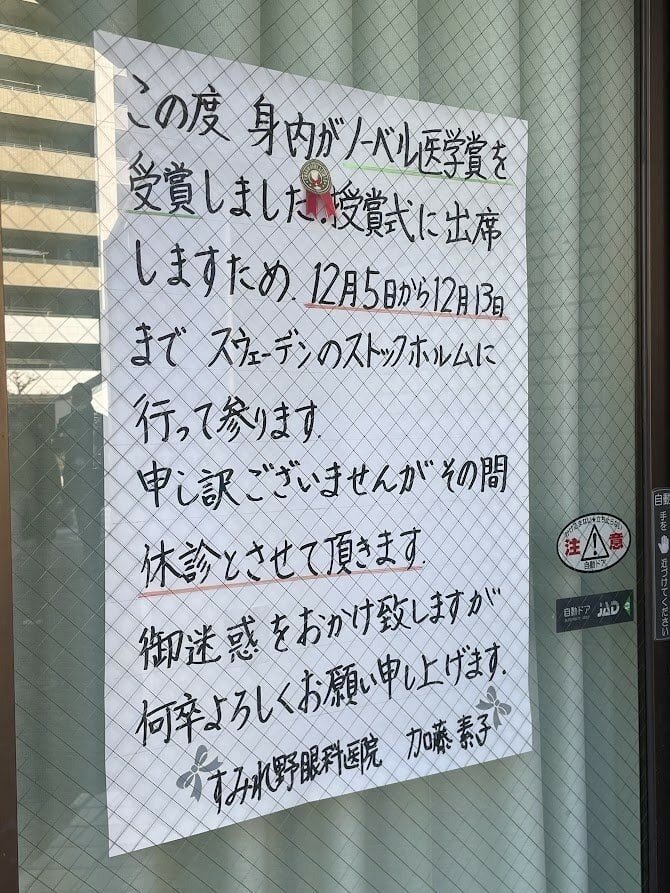 この度 身内がノーベル医学賞を
受賞しました.授賞式に出席
しますため.12月5日から12月13日
まで スウェーデンのストックホルムに
行って参ります.
申し訳ございませんがその間
休診とさせて頂きます.
御迷惑をおかけ致しますが
何卒よろしくお願い申し上げます.
すみれ野眼科医院 加藤 素子
注 意
自動ドア
自動ドア JAD
自動
手を近づけてください